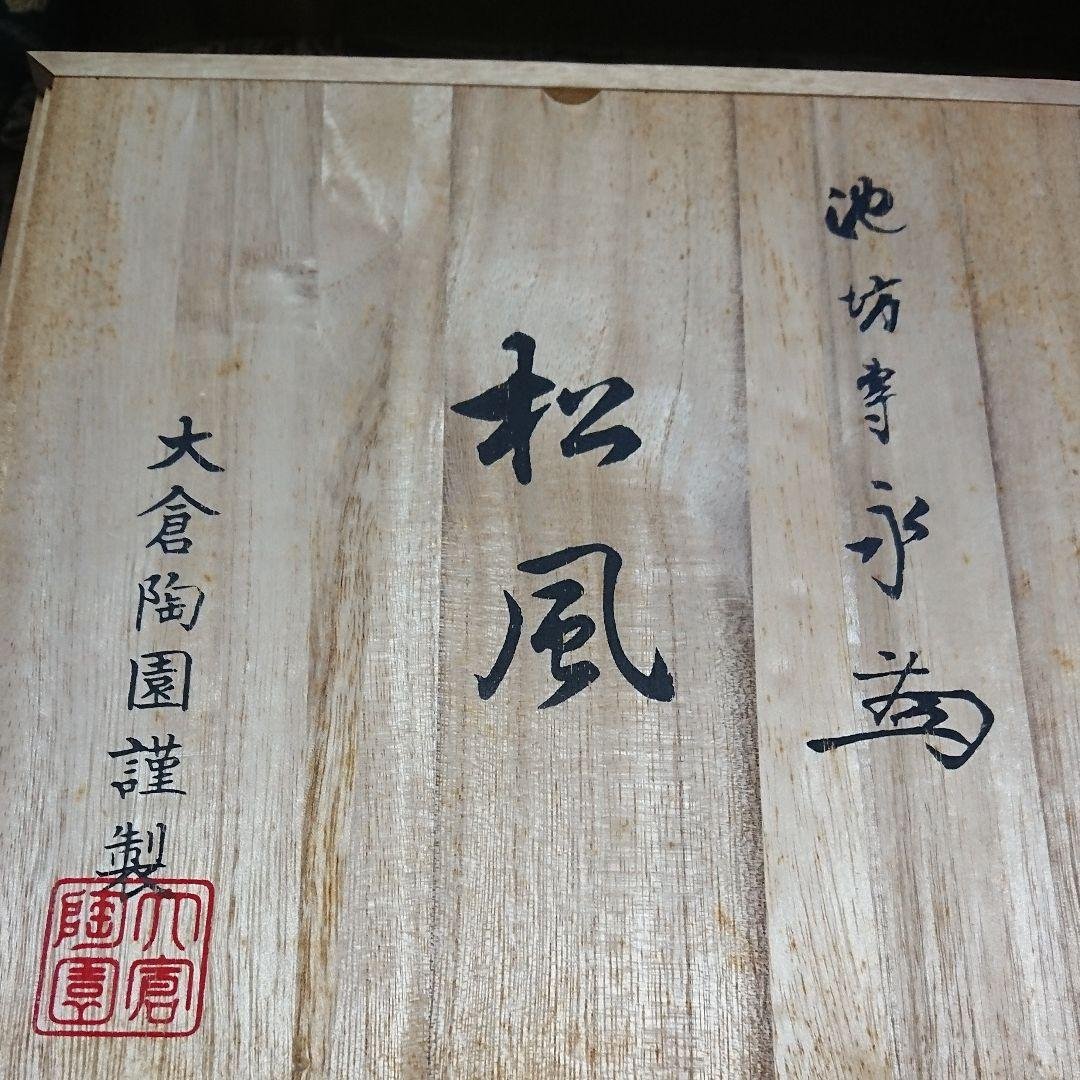 池坊専永
松風
大倉陶園謹製
大倉陶園